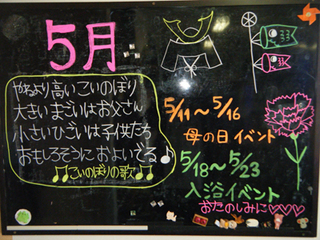 5月
やねより高いこいのぼり
大きいまごいはお父さん
小さいひごいは子供たち
おもしろそうにおよいでる♪
♫こいのぼりの歌♫
5/11～5/16
母の日イベント
5/18～5/23
入浴イベント
おたのしみに♡♡♡